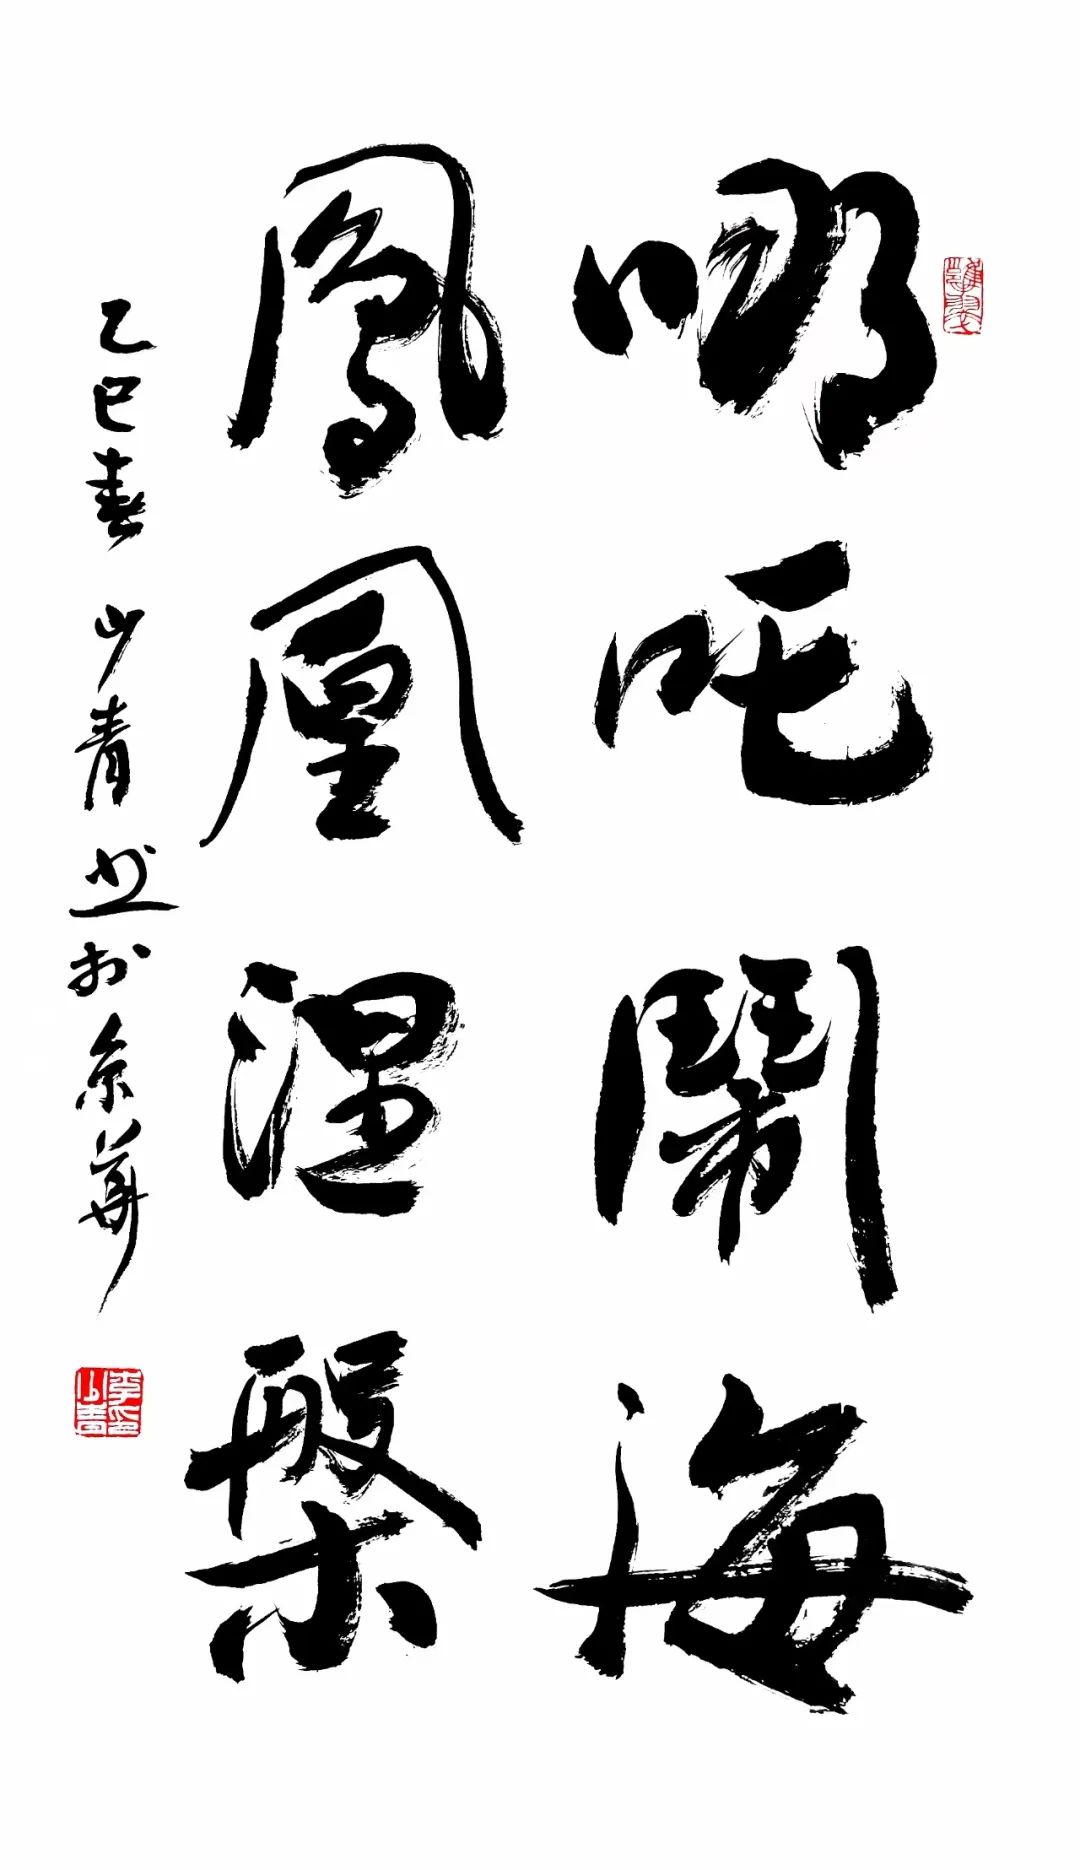 哪吒鬧海
鳳凰涅槃
乙巳春 少青书於京華